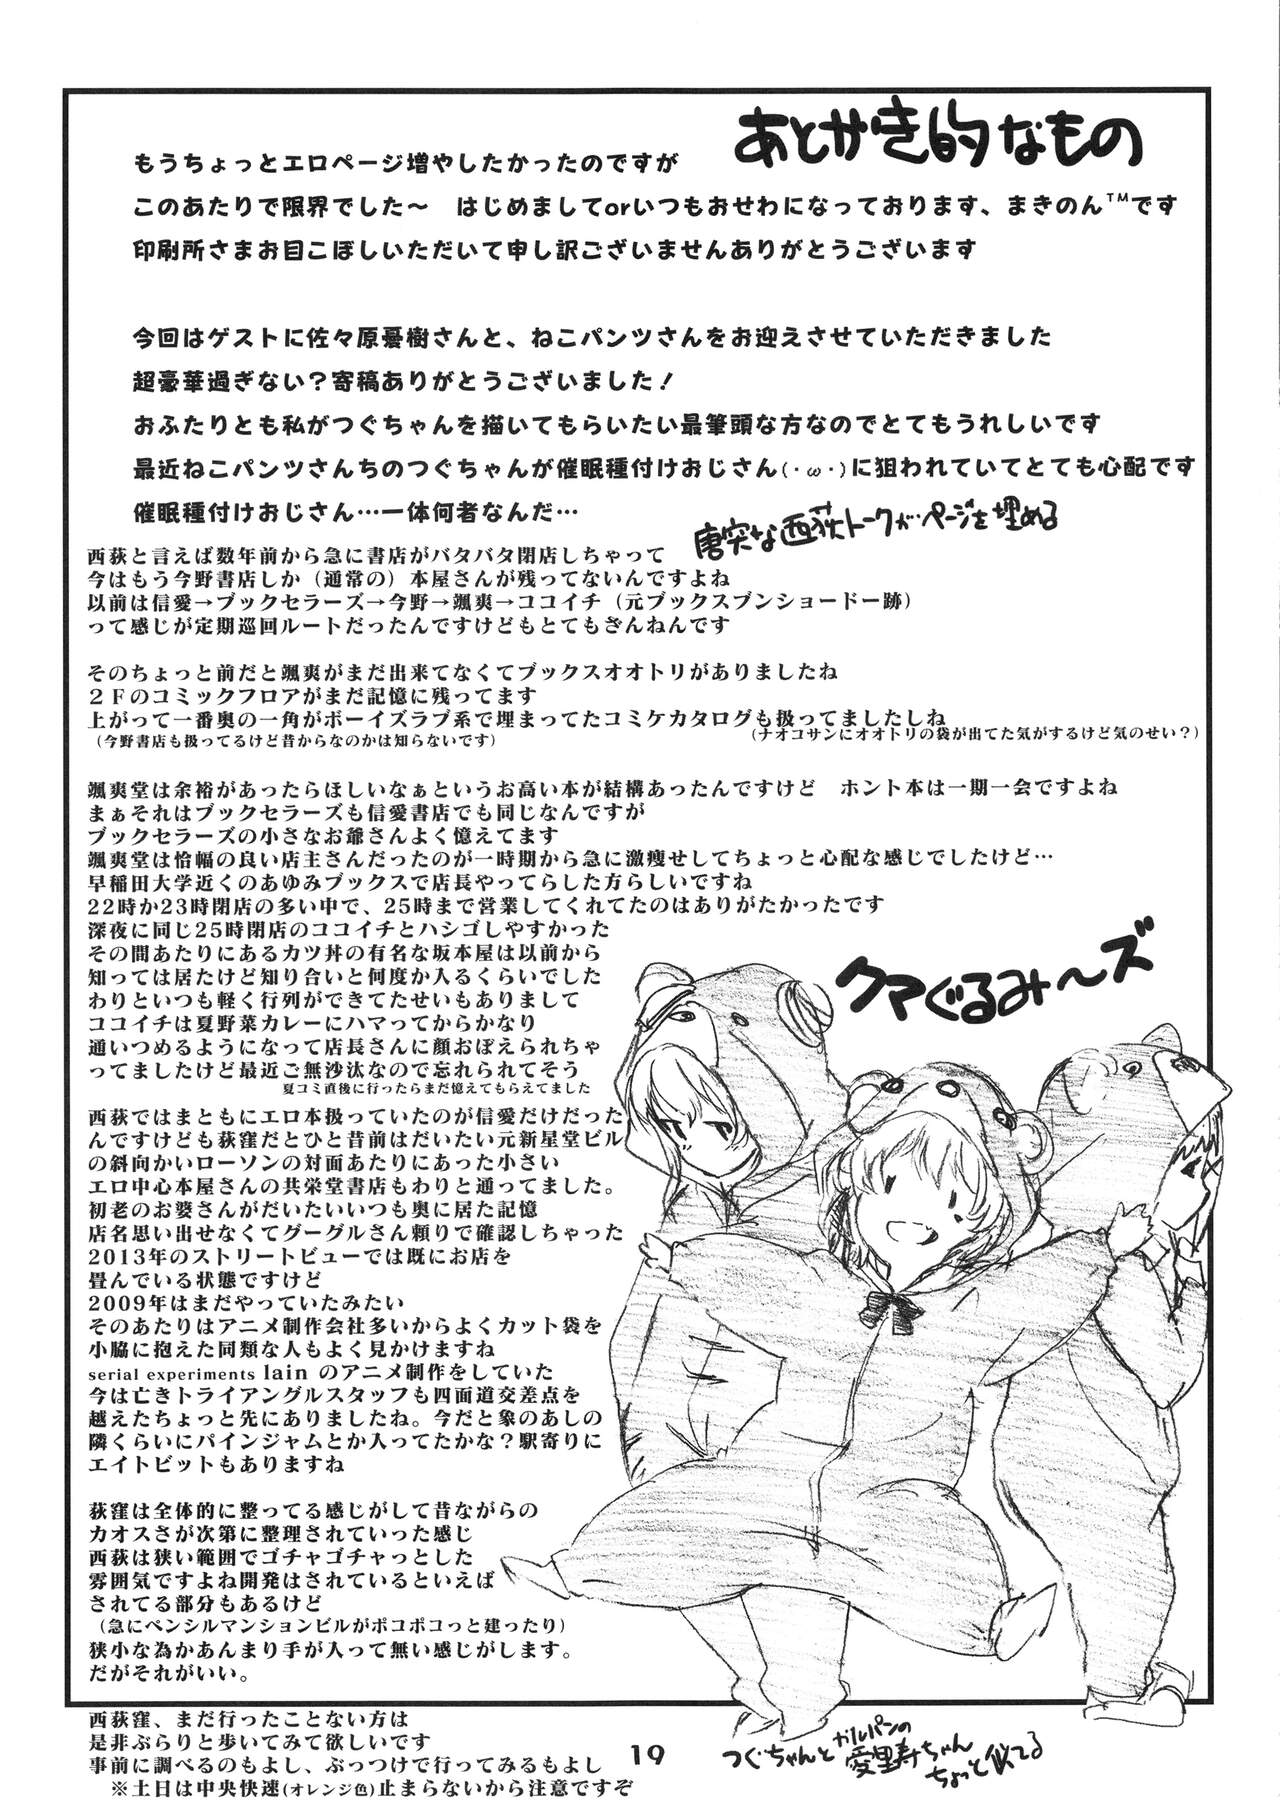 あとがき的なもの
もうちょっとエロページ増やしたかったのですが
このあたりで限界でした～　はじめましてorいつもおせわになっております、まきのん™です
印刷所さまお目こぼしいただいて申し訳ございませんありがとうございます
今回はゲストに佐々原憂樹さんと、ねこパンツさんをお迎えさせていただきました
超豪華過ぎない？寄稿ありがとうございました！
おふたりとも私がつぐちゃんを描いてもらいたい最筆頭な方なのでとてもうれしいです
最近ねこパンツさんちのつぐちゃんが催眠種付けおじさん(・ω・)に狙われていてとても心配です
催眠種付けおじさん…一体何者なんだ…
唐突な西荻トークがページを埋める
西荻と言えば数年前から急に書店がバタバタ閉店しちゃって
今はもう今野書店しか（通常の）本屋さんが残ってないんですよね
以前は信愛→ブックセラーズ→今野→颯爽→ココイチ（元ブックスブンショードー跡）
って感じが定期巡回ルートだったんですけどもとてもざんねんです
そのちょっと前だと颯爽がまだ出来てなくてブックスオオトリがありましたね
２Ｆのコミックフロアがまだ記憶に残ってます
上がって一番奥の一角がボーイズラブ系で埋まってたコミケカタログも扱ってましたしね
（今野書店も扱ってるけど昔からなのかは知らないです）
（ナオコサンにオオトリの袋が出てた気がするけど気のせい？）
颯爽堂は余裕があったらほしいなぁというお高い本が結構あったんですけど　ホント本は一期一会ですよね
まぁそれはブックセラーズも信愛書店でも同じなんですが
ブックセラーズの小さなお爺さんよく憶えてます
颯爽堂は恰幅の良い店主さんだったのが一時期から急に激痩せしてちょっと心配な感じでしたけど…
早稲田大学近くのあゆみブックスで店長やってらした方らしいですね
22時か23時閉店の多い中で、25時まで営業してくれてたのはありがたかったです
深夜に同じ25時閉店のココイチとハシゴしやすかった
その間あたりにあるカツ丼の有名な坂本屋は以前から
知っては居たけど知り合いと何度か入るくらいでした
わりといつも軽く行列ができてたせいもありまして
ココイチは夏野菜カレーにハマってからかなり
通いつめるようになって店長さんに顔おぼえられちゃ
ってましたけど最近ご無沙汰なので忘れられてそう
夏コミ直後に行ったらまだ憶えてもらえてました
西荻ではまともにエロ本扱っていたのが信愛だけだった
んですけども荻窪だとひと昔前はだいたい元新星堂ビル
の斜向かいローソンの対面あたりにあった小さい
エロ中心本屋さんの共栄堂書店もわりと通ってました。
初老のお婆さんがだいたいいつも奥に居た記憶
店名思い出せなくてグーグルさん頼りで確認しちゃった
2013年のストリートビューでは既にお店を
畳んでいる状態ですけど
2009年はまだやっていたみたい
そのあたりはアニメ制作会社多いからよくカット袋を
小脇に抱えた同類な人もよく見かけますね
serial experiments lain のアニメ制作をしていた
今は亡きトライアングルスタッフも四面道交差点を
越えたちょっと先にありましたね。今だと象のあしの
隣くらいにパインジャムとか入ってたかな？駅寄りに
エイトビットもありますね
荻窪は全体的に整ってる感じがして昔ながらの
カオスさが次第に整理されていった感じ
西荻は狭い範囲でゴチャゴチャっとした
雰囲気ですよね開発はされているといえば
されてる部分もあるけど
（急にペンシルマンションビルがポコポコっと建ったり）
狭小な為かあんまり手が入って無い感じがします。
だがそれがいい。
クマぐるみ～ズ
西荻窪、まだ行ったことない方は
是非ぶらりと歩いてみて欲しいです
事前に調べるのもよし、ぶっつけで行ってみるもよし
※土日は中央快速(オレンジ色)止まらないから注意ですぞ
19
つぐちゃんとガルパンの
愛里寿ちゃん
ちょっと似てる